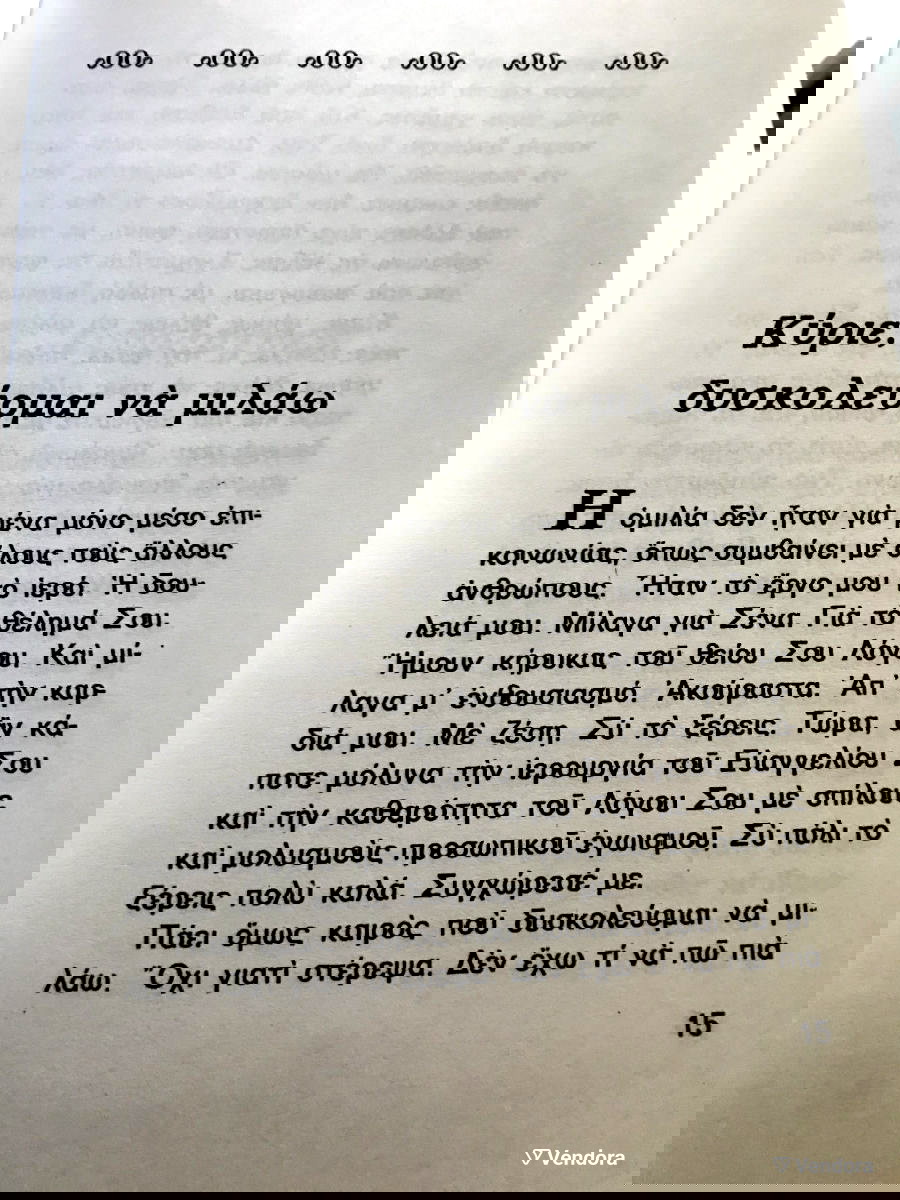 Κύριε,
δυσκολεύομαι νὰ μιλάω
Ἡ ὁμιλία δὲν ἦταν γιὰ μένα μόνο μέσο ἐπι-
κοινωνίας, ὅπως συμβαίνει μὲ ὅλους τοὺς ἄλλους
ἀνθρώπους. Ἦταν τὸ ἔργο μου τὸ ἱερό. Ἡ δου-
λειά μου. Μίλαγα γιὰ Σένα. Γιὰ τὸ θέλημά Σου.
Ἤμουν κήρυκας τοῦ θείου Σου Λόγου. Καὶ μί-
λαγα μ' ἐνθουσιασμό. Ἀκούραστα. Ἀπ' τὴν καρ-
διά μου. Μὲ ζέση. Σὺ τὸ ξέρεις. Τώρα, ἂν κά-
ποτε μόλυνα τὴν ἱερουργία τοῦ Εὐαγγελίου Σου
καὶ τὴν καθαρότητα τοῦ Λόγου Σου μὲ σπίλους
καὶ μολυσμοὺς προσωπικοῦ ἐγωισμοῦ, Σὺ πάλι τὸ
ξέρεις πολὺ καλά. Συγχώρεσέ με.
Πάει ὅμως καιρὸς ποὺ δυσκολεύομαι νὰ μι-
λάω. Ὄχι γιατὶ στέρεψα. Δὲν ἔχω τί νὰ πῶ πιὰ
15
Vendora